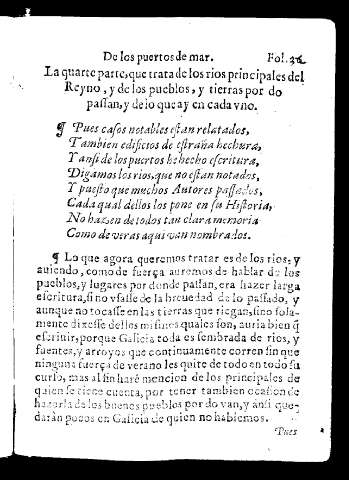 De los puertos de mar. Fol. 36
La quarte parte, que trata de los rios principales del
Reyno, y de los pueblos, y tierras por do
passan, y de lo que ay en cada vno.
¶ Pues casos notables estan relatados,
Tambien edificios de estraña hechura,
Y ansi de los puertos he hecho escritura,
Digamos los rios, que no estan notados,
Y puesto que muchos Autores passados,
Cada qual dellos los pone en su Historia,
No hazen de todos tan clara memoria
Como de veras aqui van nombrados.
¶ Lo que agora queremos tratar es de los rios, y
auiendo, como de fuerça auremos de hablar de los
pueblos, y lugares por donde passan, era hazer larga
escritura, si no vsasse de la breuedad de lo passado, y
aunque no tocasse en las tierras que riegan, sino sola-
mente dixesse dellos mismos quales son, auria bien q̃
escriuir, porque Galicia toda es sembrada de rios, y
fuentes, y arroyos que continuamente corren sin que
ninguna fuerça de verano les quite de todo en todo su
curso, mas al fin haré mencion de los principales de
quien se tiene cuenta, por tener tambien ocasion de
hazerla de los buenos pueblos por do van, y ansi que-
darán pocos en Galicia de quien no hablemos.
Pues